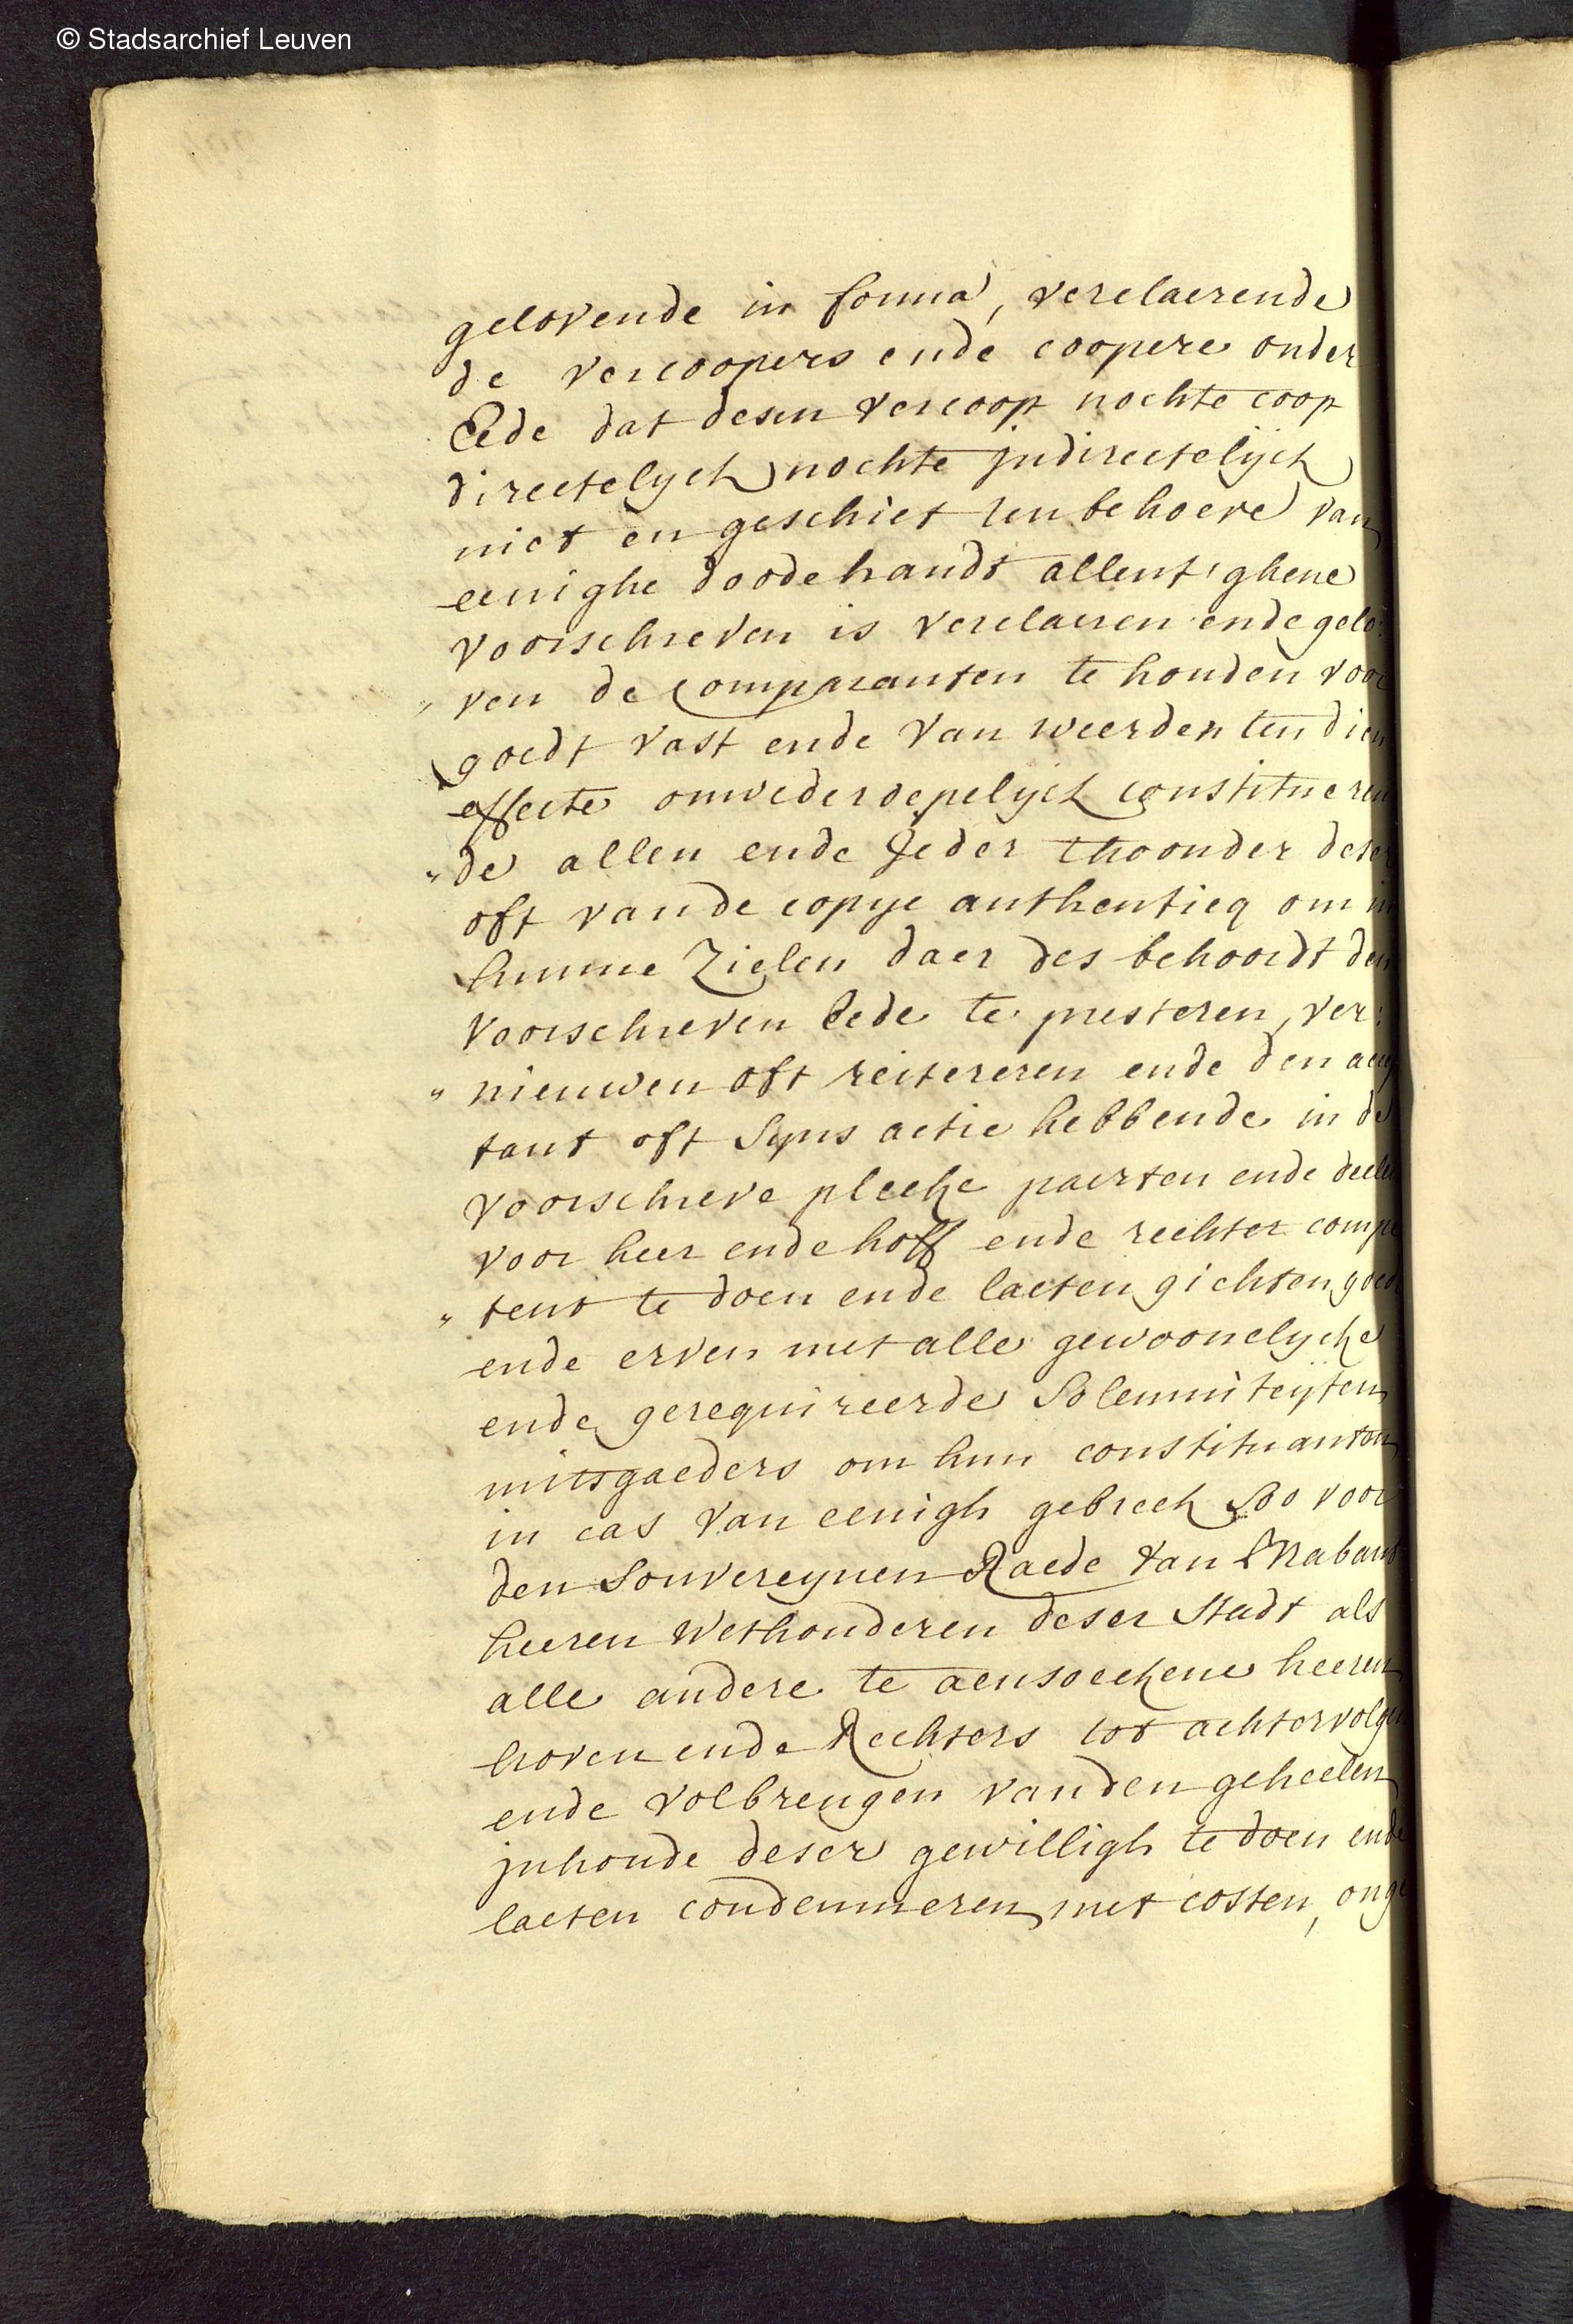 © Stadsarchief Leuven
gelovende in forma, verclaerende
de vercoopers ende coopere onder
Eede dat desen vercoop nochte coop
directelyck nochte jndirectelijck
niet en geschiet ten behoeve van
eenighe doode handt allent'ghene
voorschreven is verclaeren ende gelo:
„ ven de Comparanten te houden voor
goedt vast ende van weerden ten dien
effecte onwederoepelijck constitueren
„ de allen ende Jeder thoonder deser
oft vande copye authenticq om in
hunne Zielen daer des behoordt den
voorschreven Eede te presteren, ver:
„ nieuwen oft reitereren ende den
tant oft Syns actie hebbende in de
voorschreve plecke paerten ende deelen
voor heer ende hoff ende rechter compe
„ tent te doen ende laeten gichten goed
ende erven met alle gewoonelycke
ende gerequireerde Solemniteyten
mitsgaeders om hun constituanten
in cas van eenigh gebreck Soo voor
den Souvereynen Raede van Brabant
heeren Wethouderen deser Stadt als
alle andere te aensoeckene heeren
hoven ende Rechters tot achtervolgen
ende volbrengen vanden geheelen
jnhoude deser gewilligh te doen ende
laeten condemneren met costen, onge